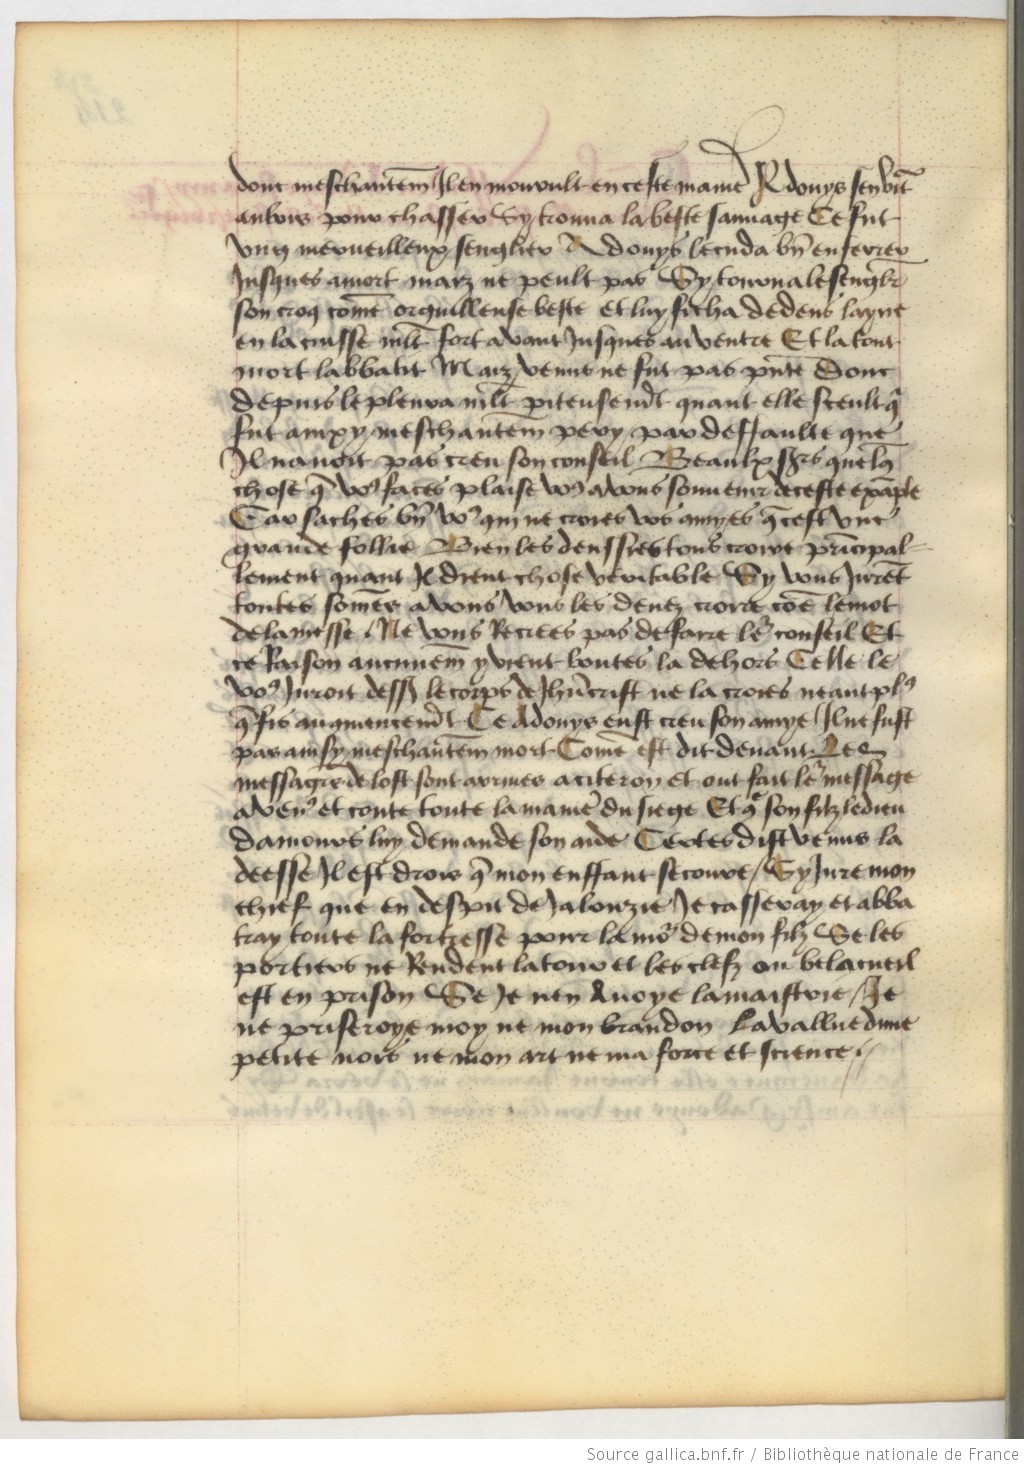 donc meschantem̃t Il en mourult en ceste manie᷑ Adonys sen vīt
au bois pour chasser Sy trouua la beste sauuage Ce fut
vng merueilleux senglier Adonys le cuda bñ enferrer
Jusques a mort maiz ne peult pas Sy tourna le sengl̃r
son croq com̃e orguilleuse beste et luy ficha dedens layne
en la cuisse mlt̃ fort auant Jusques au ventre Et la tout
mort labbatit Maiz venus ne fut pas pñte Donc
depuis le pleura mlt̃ piteusemẽt quant elle sceult q̃
fut ainxy meschantem̃t pery par deffaulte que
Il nauoit pas creu son conseil Beaulx sgrs quelq̃
chose q̃ voꝰ faces plaise voꝰ a vous souuenir de ceste exãple
Car saches bñ voꝰ qui ne croies vos amyes q̃ cest vne
grande follie Bien les deussies tous croire prĩcipal-
lement quant Il dient chose veritable Sy vous Jurẽt
toutes som̃es a vous vous les deuez croire cõe le mot
de la messe Ne vous Recrees pas de faire le᷑ conseil Et
ce Raison aucunem̃t y vient boutes la dehors Celle le
voꝰ Juroit dess᷑ le corps de Jhũcrist ne la croies neant plꝰ
q̃ fis au q̃mencem̃t Ce Adonys eust creu son amye Il ne fust
pas ainsy meschantem̃t mort Com̃e est dit deuant Les
messagrs de lost sont arriues a citeron et ont fait le᷑ message
a venꝰ et conte toute la manie᷑ du siege Et q̃ son filz le dieu
damours luy demande son aide Certes dist venus la
deesse Il est drois q̃ mon enffant secoure / Sy Jure mon
chief que en despit de Jalouzie Je casseray et abba
tray toute la fortresse pour lamo᷑ de mon filz Se les
portiers ne Rendent la tour et les clefz ou belacueil
est en prison Se Je nen Auoye la maistrie / Je
ne priseroye moy ne mon brandon La vallue dune
petite nois ne mon art ne ma force et science ./
Source gallica.bnf.fr / Bibliothèque nationale de France